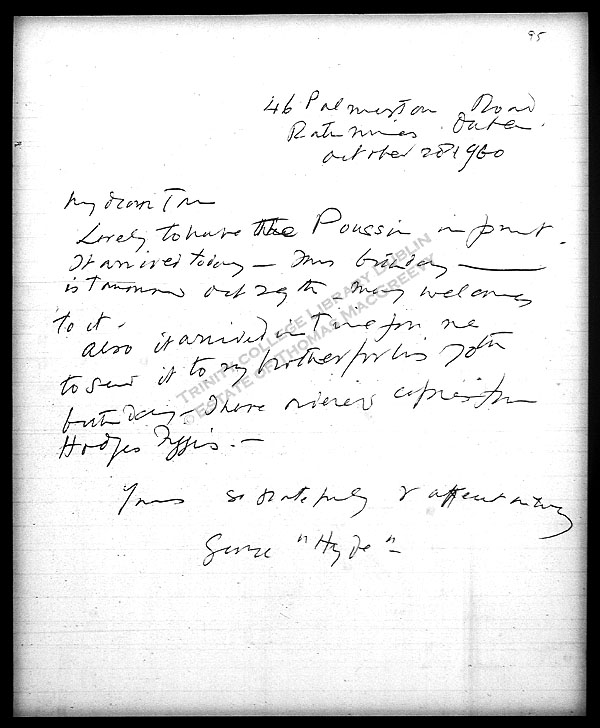 95
46 Palmerston Road
Rathmines Dublin.
October 28 1960
My dear Tom
Lovely to have the Poussin in print.
It arrived today — Ims birthday —
is tomorrow Oct 29th — many welcomes
to it.
Also it arrived in time for me
to send it to my brother for his 70th
birthday — I have ordered copies from
Hodges Figgis. —
Yours so gratefully & affectionately
George "Hyde" —
TRINITY COLLEGE LIBRARY DUBLIN
© ESTATE OF THOMAS MACGREEVY